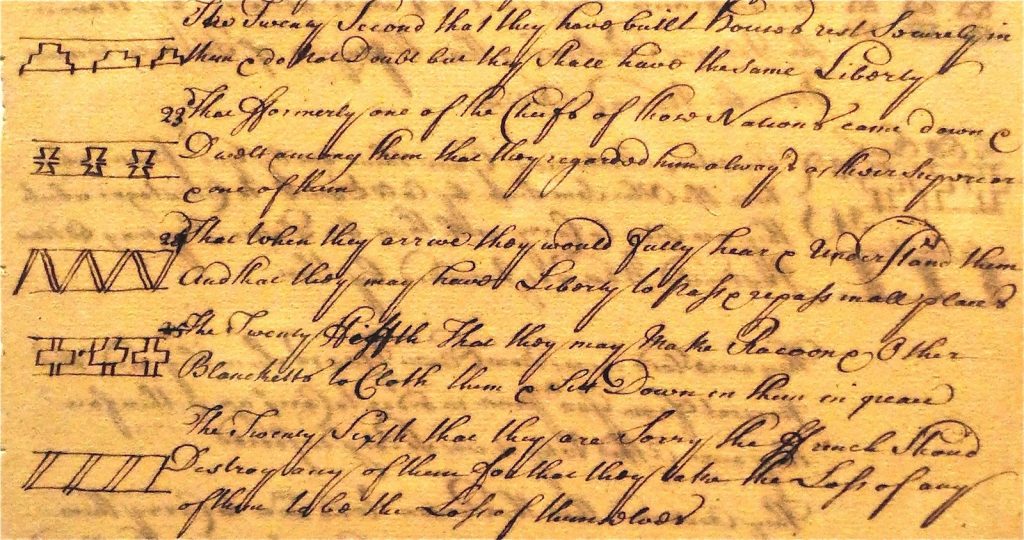 The Twenty Second that they have built Houses rest Securely in
them & do not Doubt but they Shall have the same Liberty
23 That fformerly one of the Cheifs of those Nations came down &
Dwelt among them that they regarded him alway's as their Superior
& one of them
24 That when they arrive they would fully hear & Understand them
And that they may have Liberty to pass & repass in all places
25 The Twenty ffiffth That they may Make Racoon & Other
Blancketts to Cloth them & Sitt Down in them in peace
The Twenty Sixth that they are Sorry the ffrench Shoud
Destroy any of them for that they take the Loss of any
of them to be the Loss of themselves